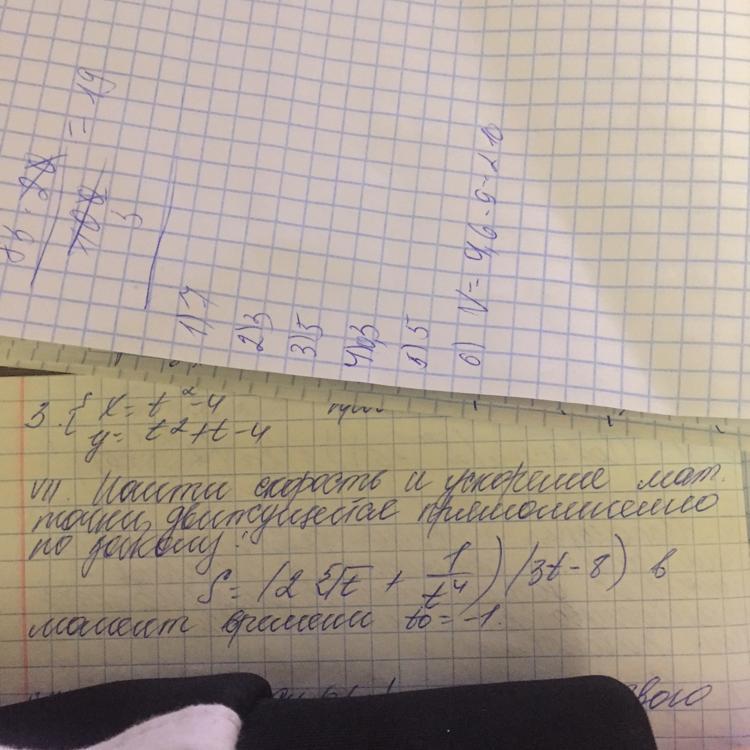 = 19
1) 7
2) 3
3) 5
4) 0,5
5) 5
6) V = 9,6 · 9 -
3. { x = t² - 4
y = t² + t - 4
VII. Найти скорость и ускорение мат.
точки, движущейся прямолинейно
по закону:
S = (2⁵√t + 1/t⁴)(3t - 8) в
момент времени t₀ = -1.